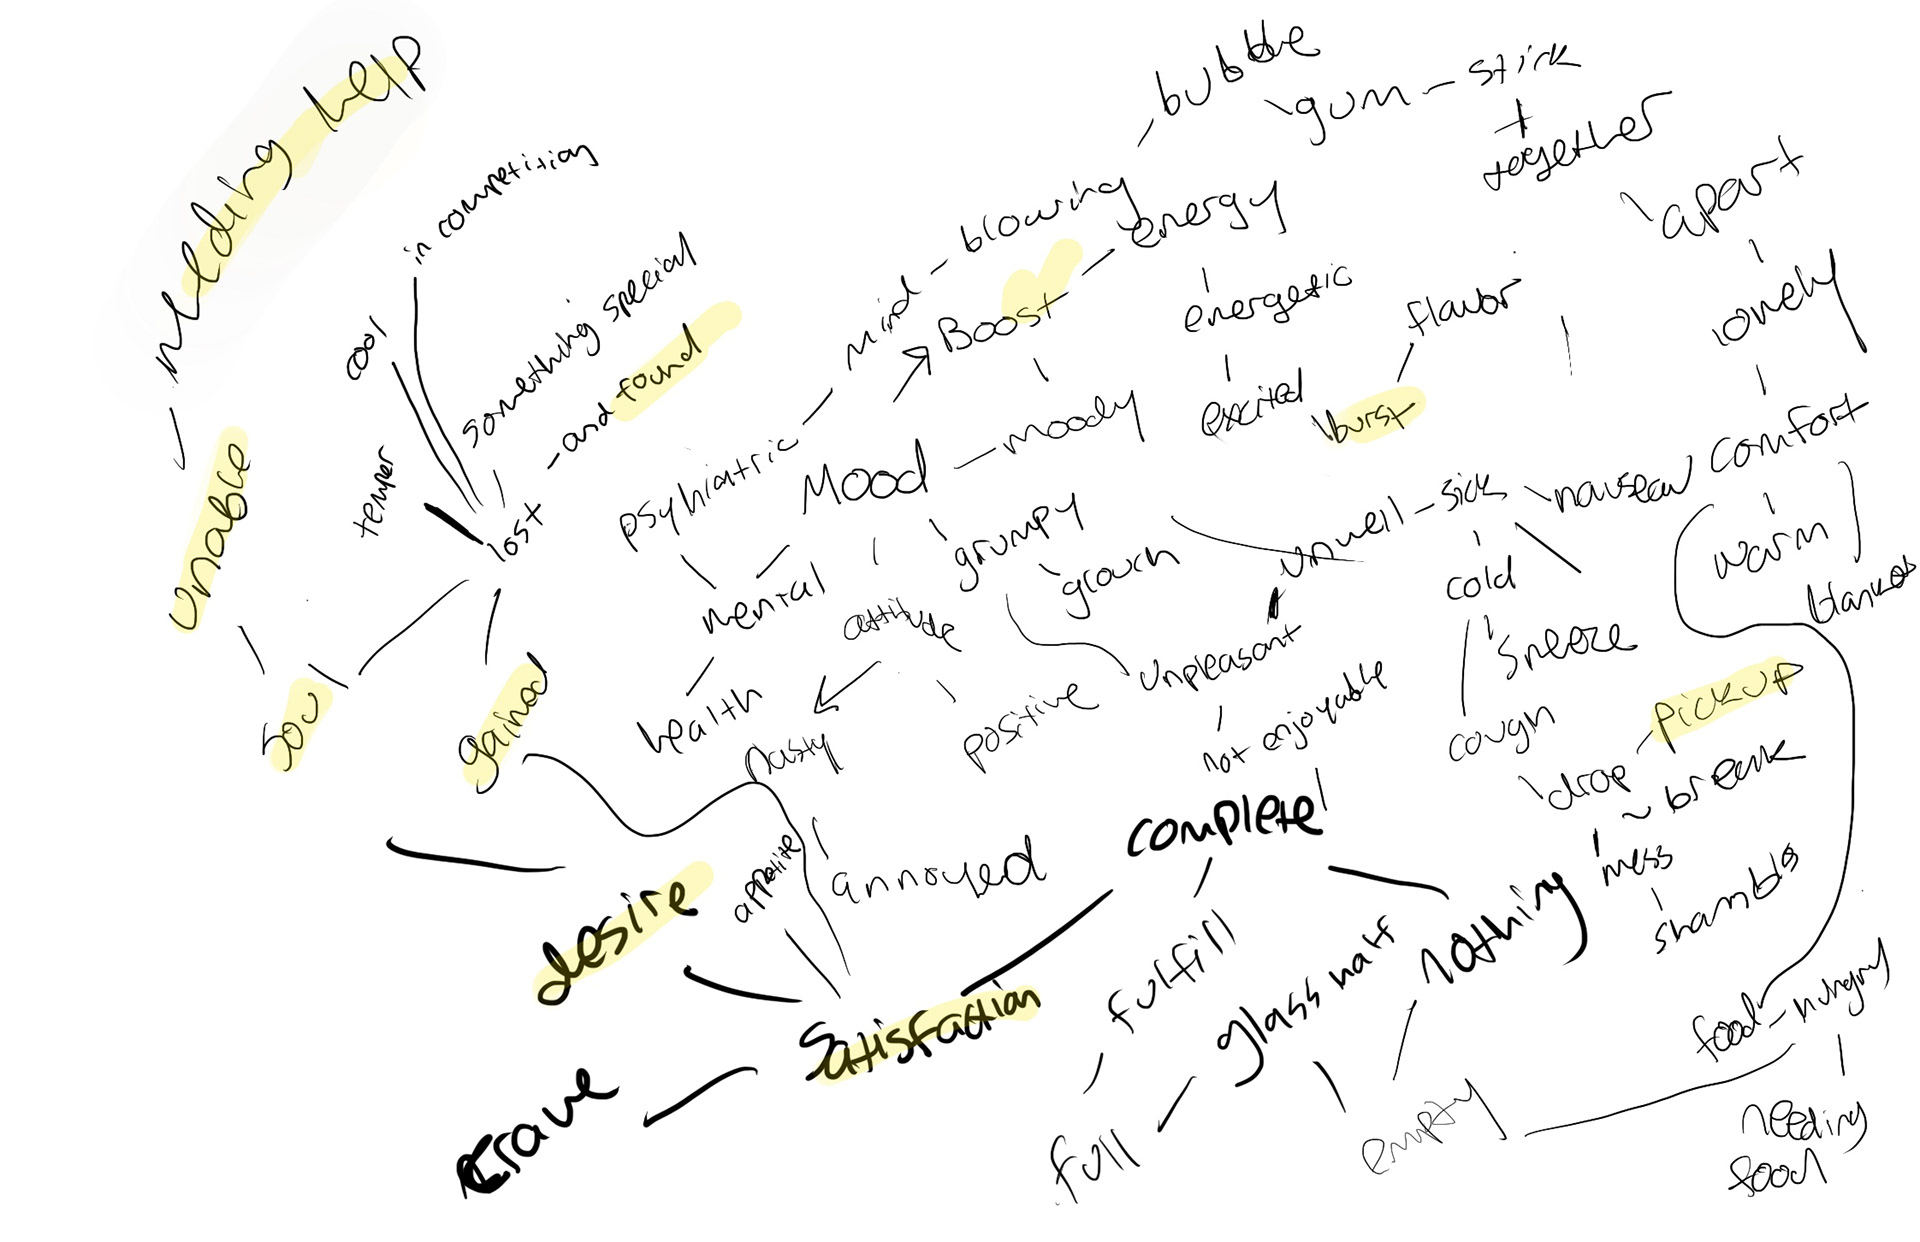 needing help
in competition
cool
something special
and found
temper
lost
unable
soul
gained
bubble
gum
stick
together
apart
lonely
comfort
warm
blankets
mind
blowing
energy
Boost
energetic
excited
flavor
burst
psyhiatric
Mood
moody
grumpy
grouch
mental
attitude
health
nasty
positive
unpleasant
unwell
sick
cold
sneeze
cough
not enjoyable
drop
pickup
break
mess
shambles
annoyed
appetite
complete
desire
satisfaction
crave
fulfill
glass half
nothing
full
empty
food
hungry
needing
food